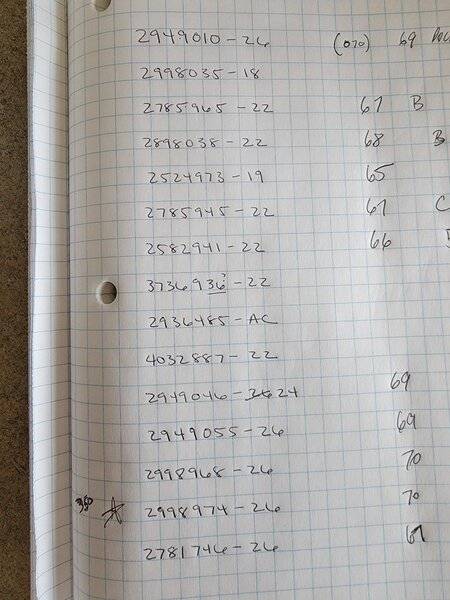 2949010-26 (070) 69
2998035-18
2785965-22 67 B
2898038-22 68 B
2524973-19 65
2785945-22 67 C
2582941-22 66
3736936?-22
2936485-AC
4032887-22
2949046-24 69
2949055-26 69
2998968-26 70
350 ☆ 2998974-26 70
2781746-26 67